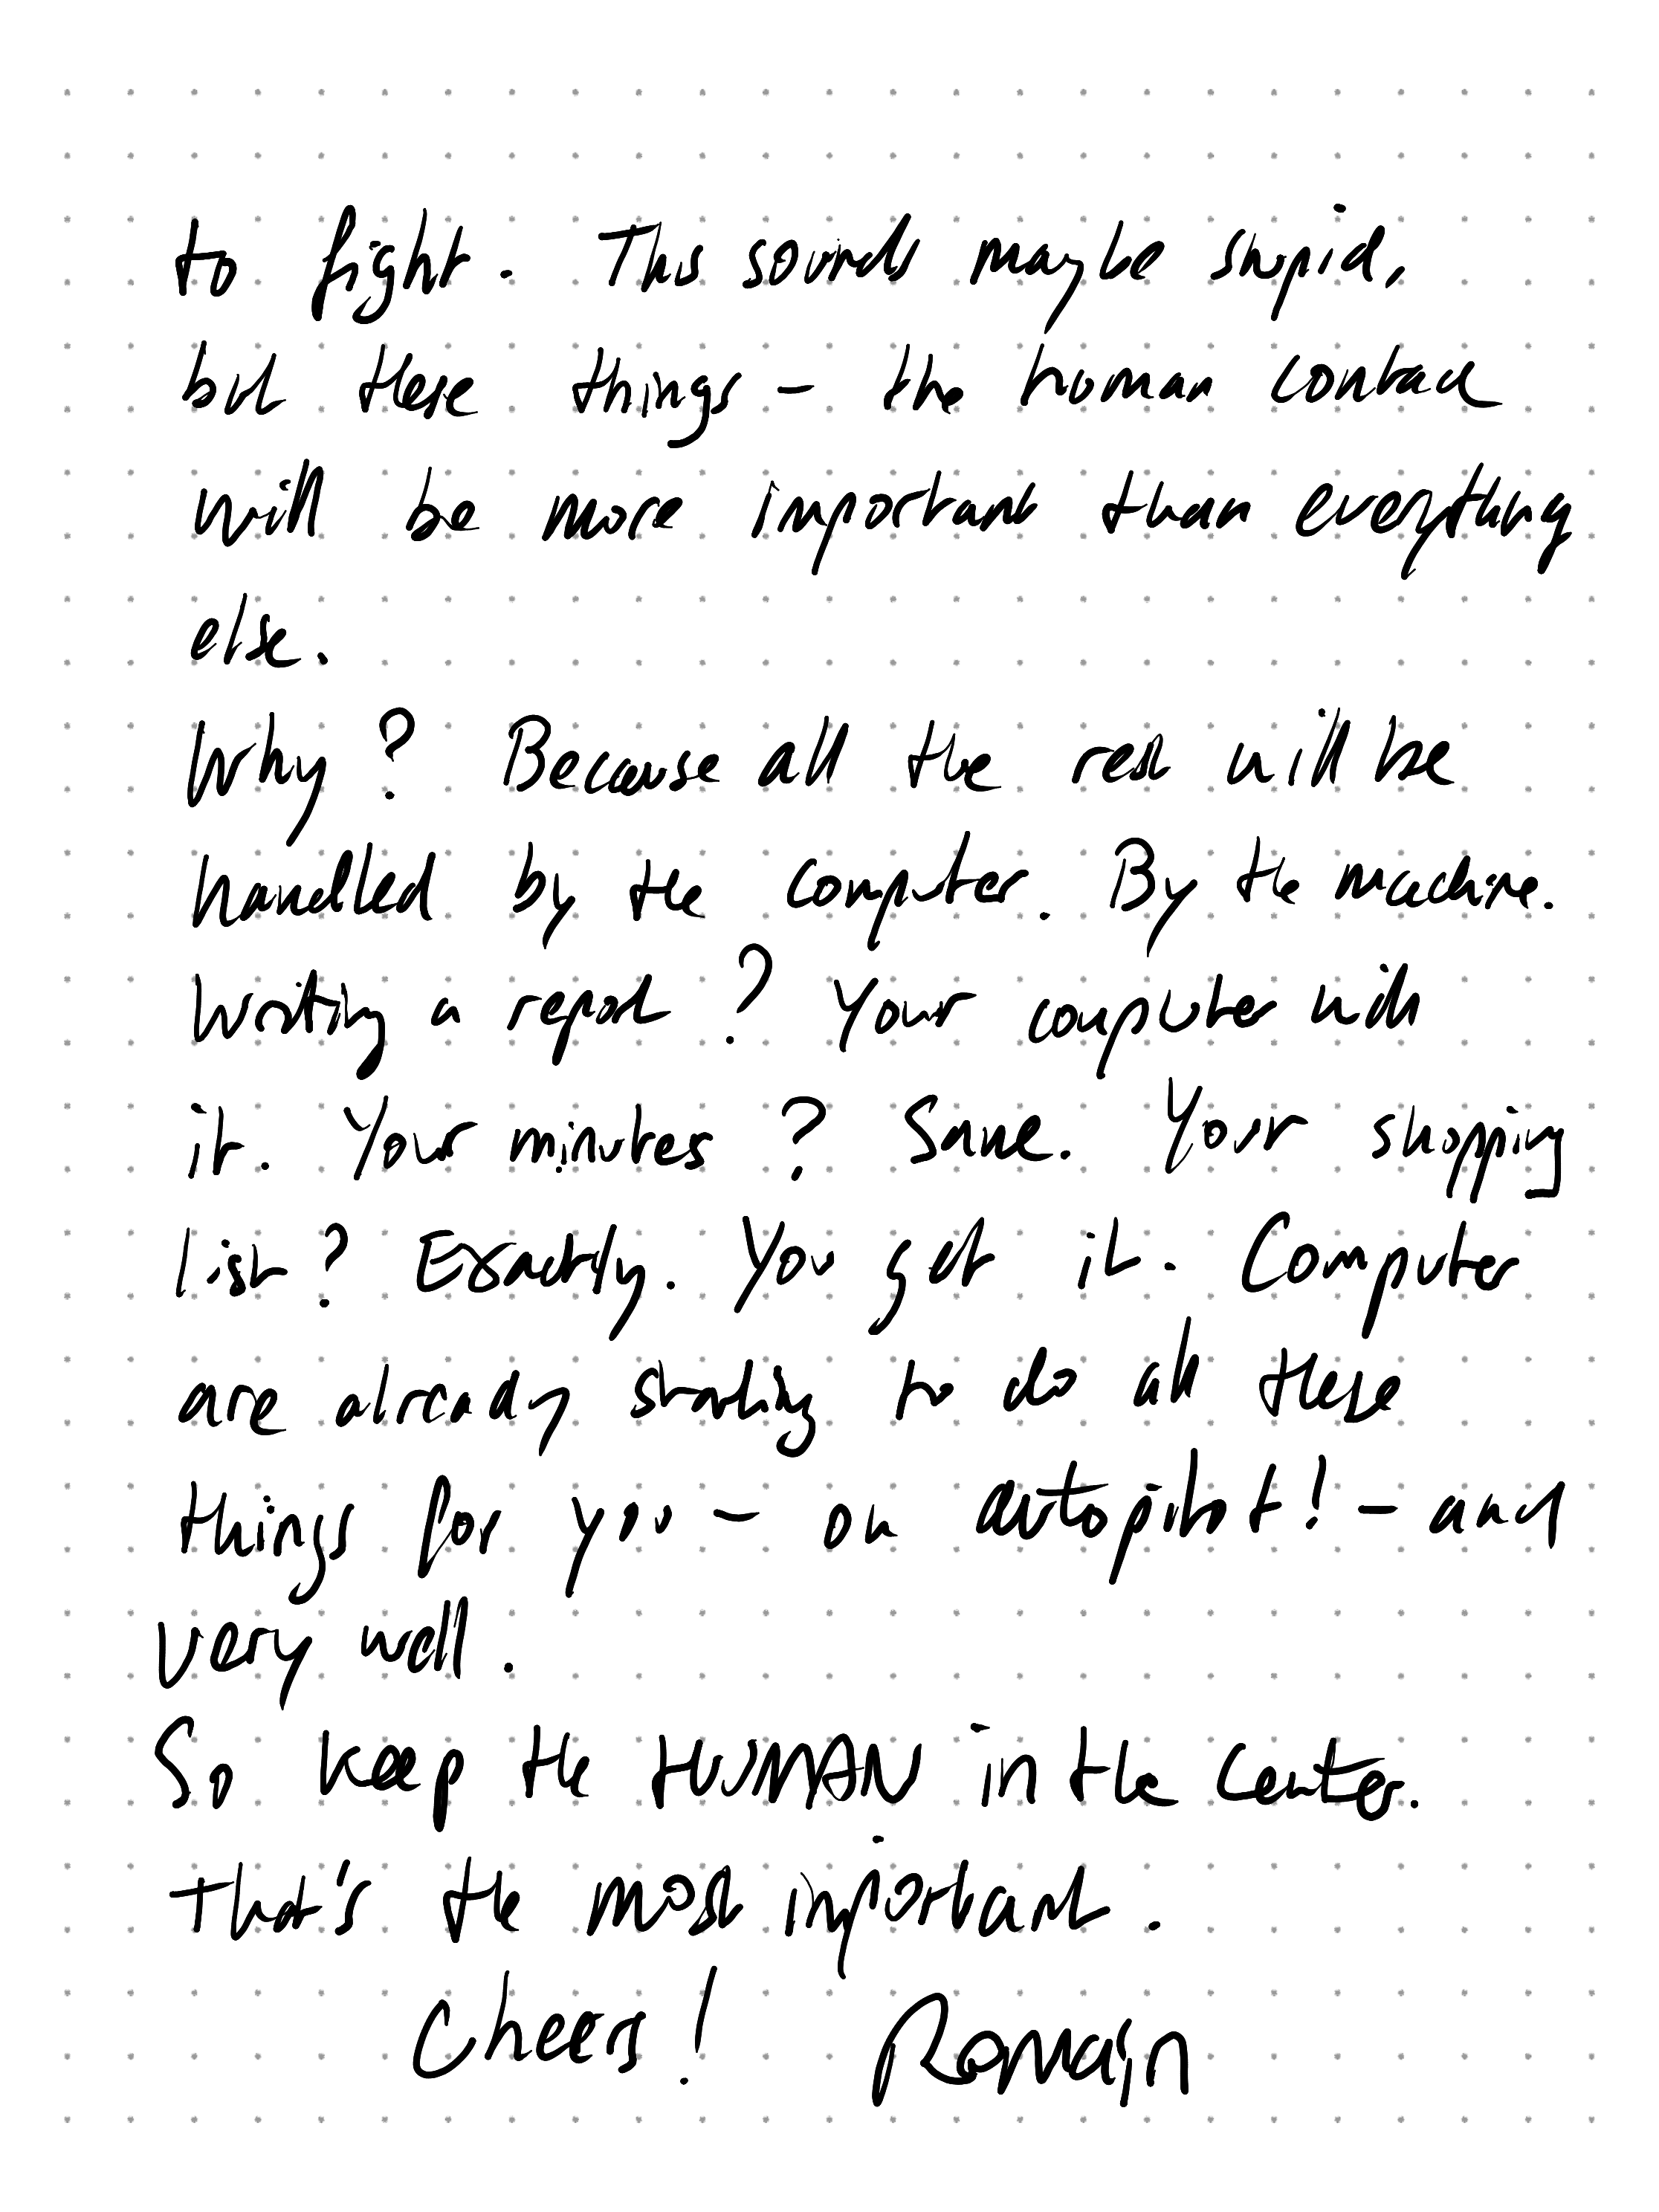 to fight. This sounds maybe stupid,
but these things – the human contact
will be more important than everything
else.
Why? Because all the rest will be
handled by the computer. By the machine.
Writing a report? Your computer will
it. Your minutes? Same. Your shopping
list? Exactly. You get it. Computer
are already starting to do all these
things for you – on autopilot! – and
very well.
So keep the HUMAN in the center.
That's the most important.
Cheers! Romain